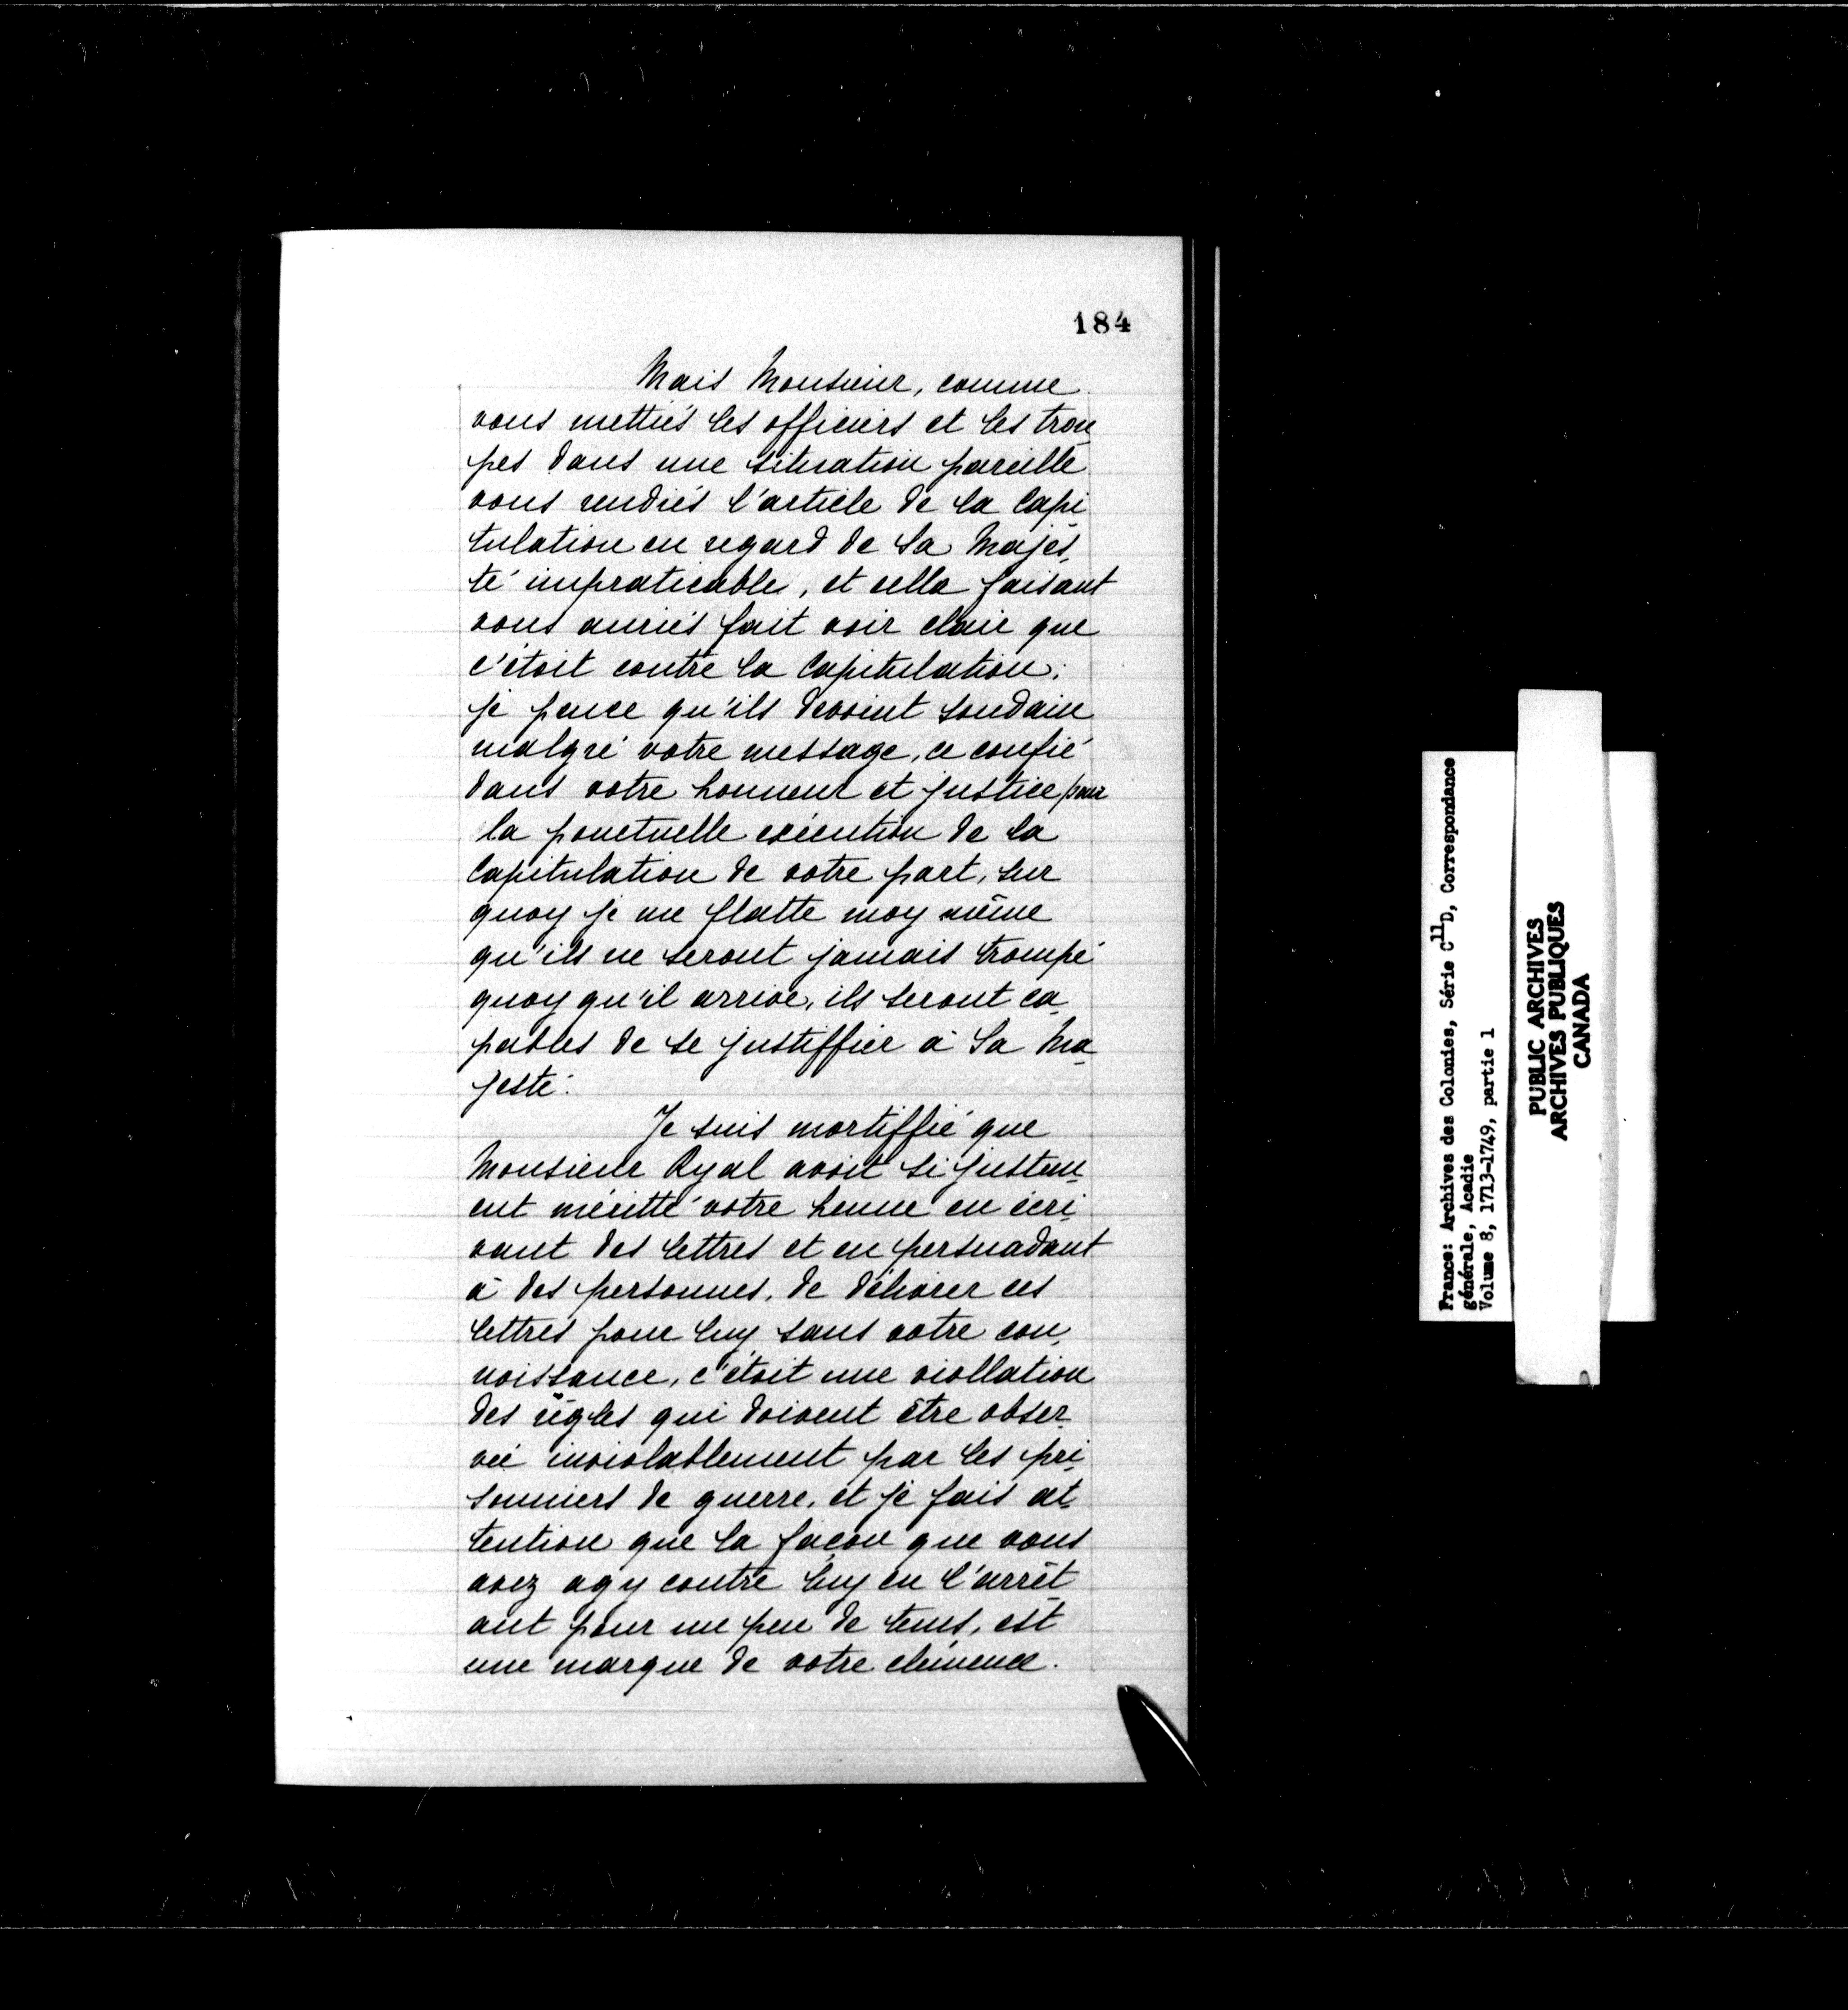 184
Mais Monsieur, comme
vous mettiés les officiers et les trou
pes dans une situation pareille
vous rendiés l'article de la Capi
tulation en regard de Sa Majes,
té impraticable, et cella faisant
vous auriés fait voir clair que
c'étoit contre la Capitulation;
je pence qu'ils devoint soudain
malgré votre message, ce confié
dans votre honneur et justice pour
la ponctuelle exécution de la
Capitulation de votre part, sur
quoy je me flatte moy même
qu'ils ne seront jamais trompé
quoy qu'il arrive, ils seront ca,
pables de se justiffier à Sa Ma
jesté.
Je suis mortiffié que
Monsieur Ryal avoit si justem,
ent méritté votre henne en écri,
vant des lettres et en persuadant
à des personnes, de délivrer ces
lettres pour luy sans votre con,
noissance, c'étoit une viollation
des règles qui doivent être obser,
vée inviolablement par les pri,
sonniers de guerre, et je fais at,
tention que la façon que vous
avez agy contre luy en l'arrêt
ant pour un peu de tems, est
une marque de votre clémence.
France: Archives des Colonies, Série C11D, Correspondance
générale, Acadie
Volume 8, 1713-1749, partie 1
PUBLIC ARCHIVES
ARCHIVES PUBLIQUES
CANADA